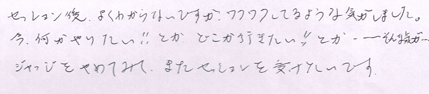 セッション後、よくわからないですが、フワフワしてるような気がしました。
今、何かやりたい!!とか どこか行きたい!!とか・・・そんな気が…
ジャッジをやめてみて、またセッションを受けたいです。